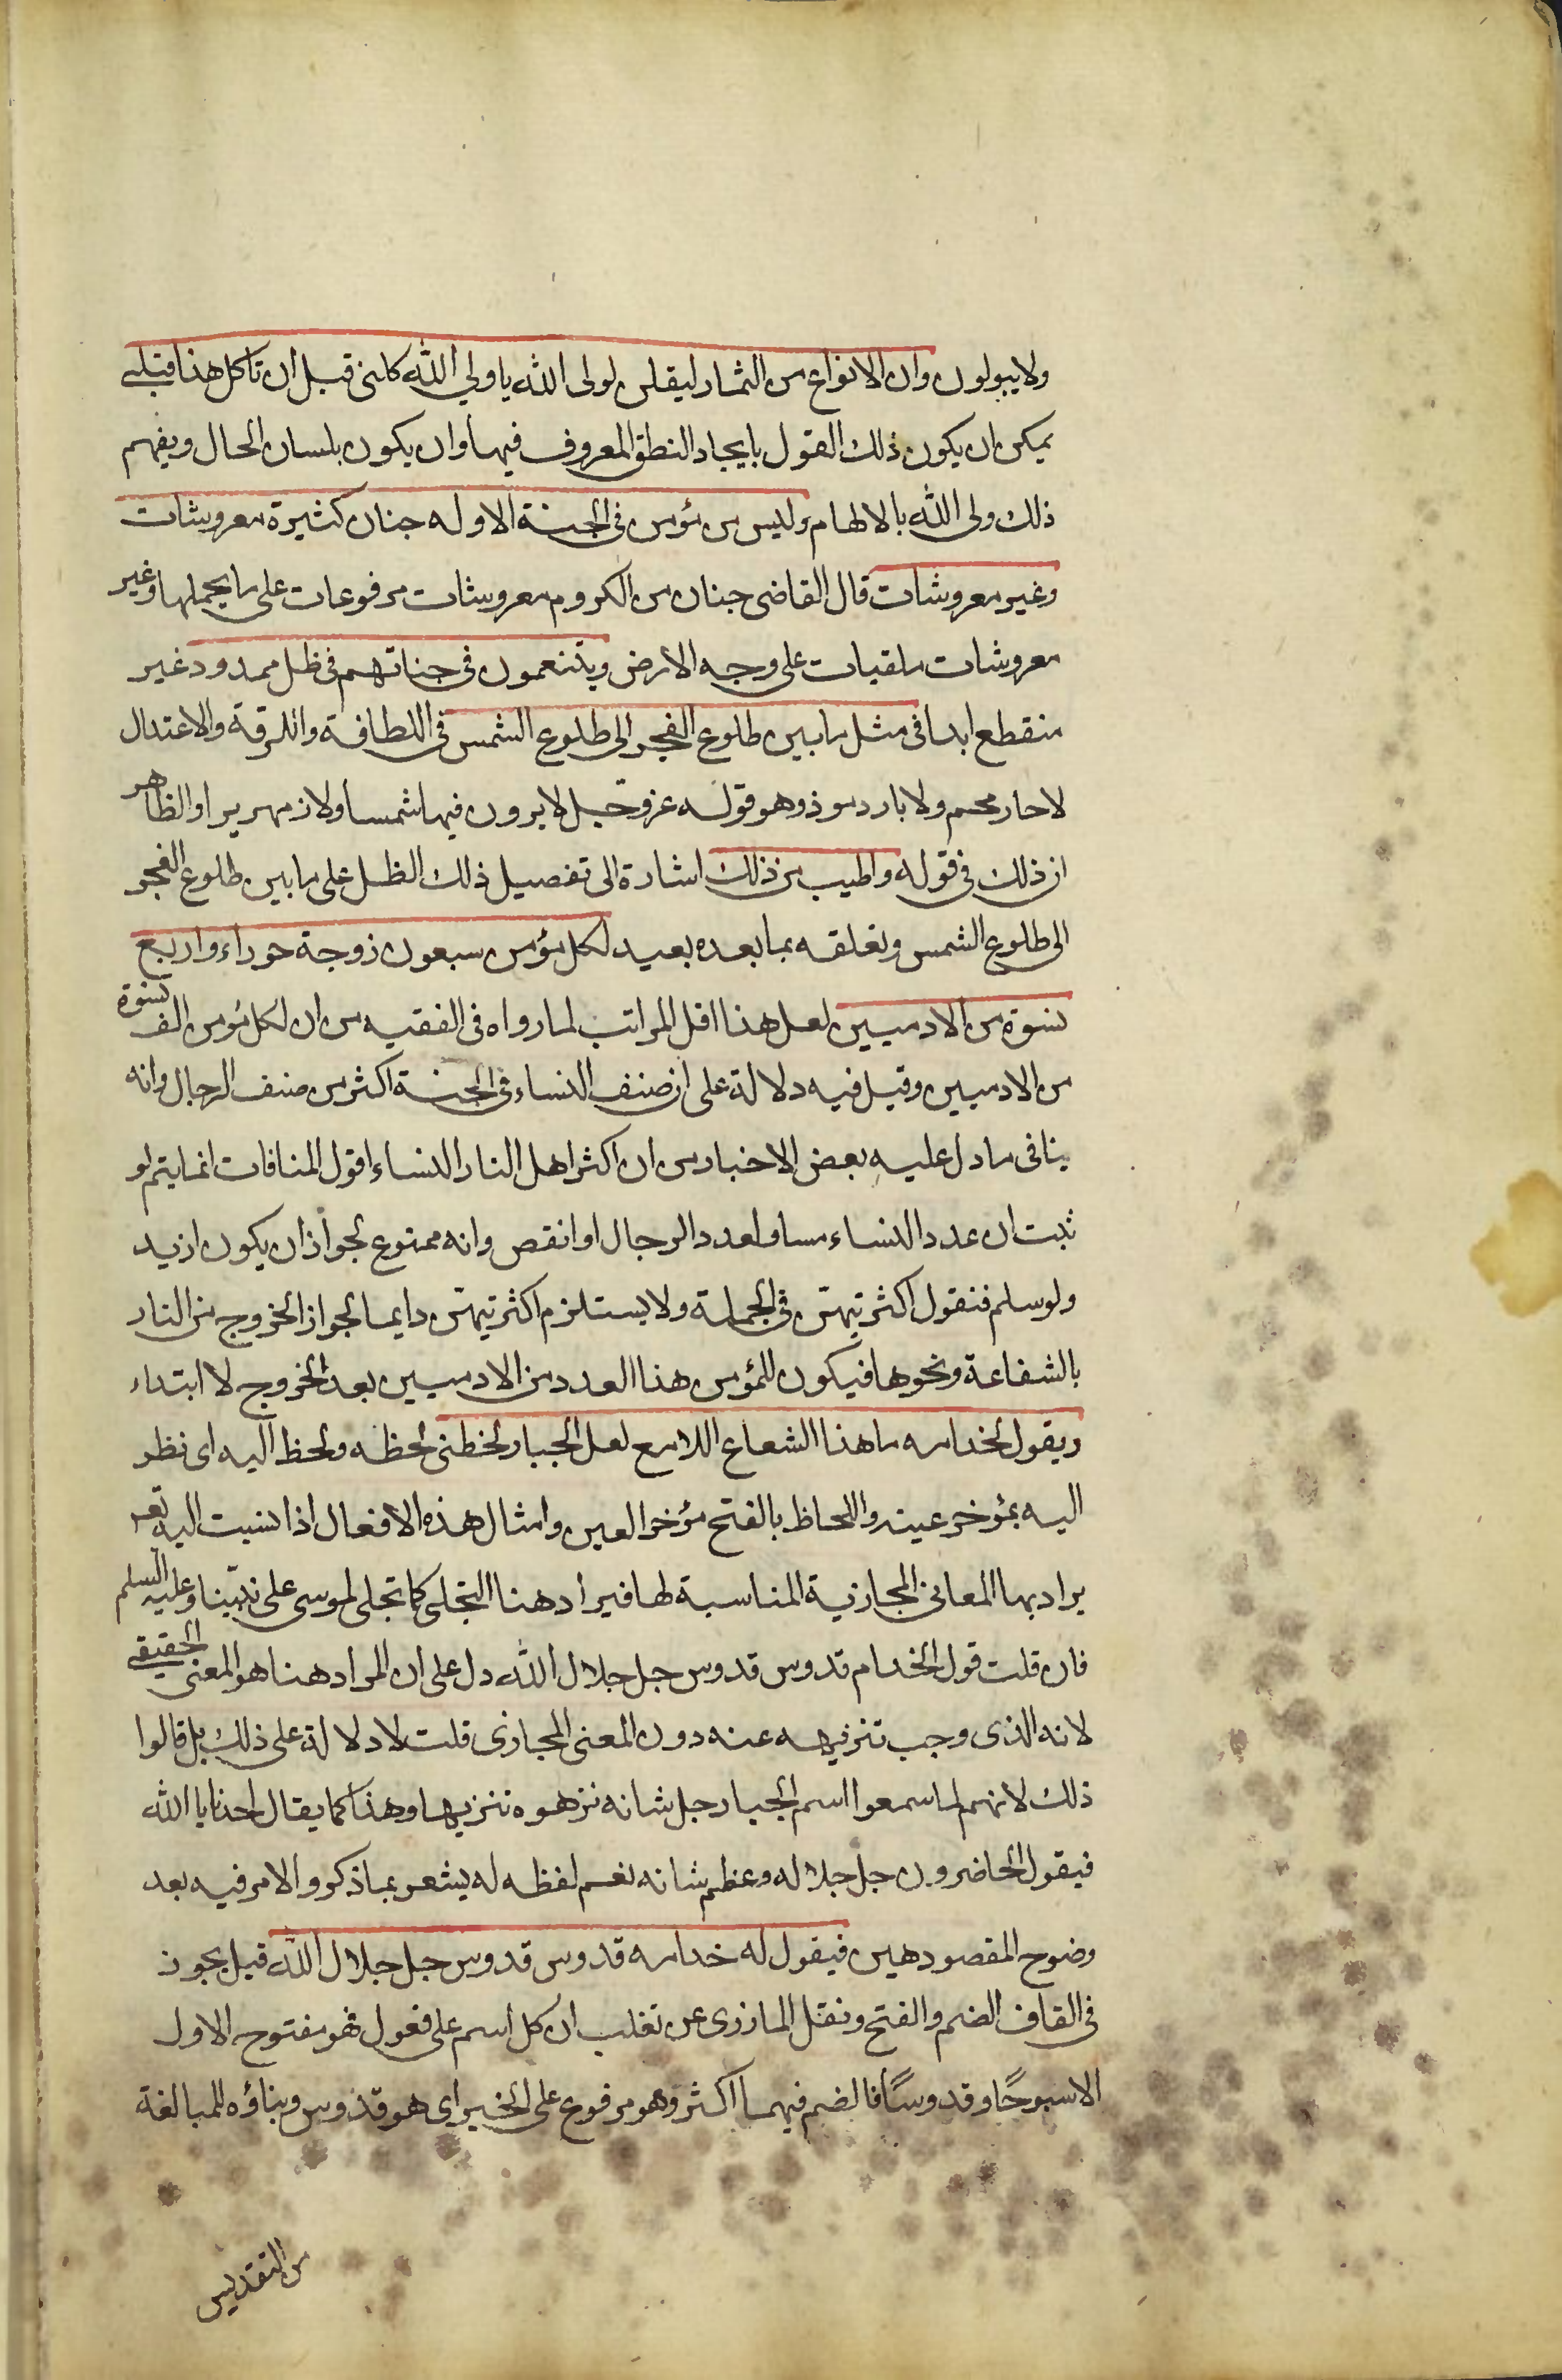 ولا يبولون وان الانواع من الثمار ليقلن لولى الله يا ولي الله كلنى قبل ان تاكل هذا قبلى
يمكن ان يكون ذلك القول بايجاد النطق المعروف فيها وان يكون بلسان الحال ويفهم
ذلك ولى الله بالالهام وليس من مؤمن فى الجنة الا وله جنان كثيرة معروشات
وغير معروشات قال القاضى جنان من الكروم معروشات مرفوعات على ما يحملها وغير
معروشات ملقيات على وجه الارض ويتنعمون فى جناتهم فى ظل ممدود غير
منقطع ابدا فى مثل ما بين طلوع الفجر الى طلوع الشمس فى اللطافة والرقة والاعتدال
لا حار محم ولا بارد موذ وهو قوله عز وجل لا يرون فيها شمسا ولا زمهريرا والظاهر
ان ذلك فى قوله واطيب من ذلك اشارة الى تفصيل ذلك الظل على ما بين طلوع الفجر
الى طلوع الشمس وتعلقه بما بعده بعيد لكل مؤمن سبعون زوجة حوراء واربع
نسوة من الادميين لعل هذا اقل المراتب لما رواه فى الفقيه من ان لكل مؤمن الف نسوة
من الادميين وقيل فيه دلالة على ان صنف النساء فى الجنة اكثر من صنف الرجال وانه
ينافى ما دل عليه بعض الاخبار من ان اكثر اهل النار النساء اقول المنافات انما يتم لو
ثبت ان عدد النساء مساو لعدد الرجال او انقص وانه ممنوع لجواز ان يكون ازيد
ولو سلم فنقول اكثريتهن فى الجملة ولا يستلزم اكثريتهن دايما لجواز الخروج من النار
بالشفاعة ونحوها فيكون للمؤمن هذا العدد من الادميين بعد الخروج لا ابتداء
ويقول لخدامه ما هذا الشعاع اللامع لعل الجبار لحظنى لحظه ولحظ اليه اى نظر
اليه بمؤخر عينه واللحاظ بالفتح مؤخر العين وامثال هذه الافعال اذا نسبت اليه تعم
يراد بها المعانى المجازية المناسبة لها فيراد هنا التجلى كما تجلى لموسى على نبينا وعليه السلم
فان قلت قول الخدام قدوس قدوس جل جلال الله دل على ان المراد هنا هو المعنى الحقيقى
لانه الذى وجب تنزيهه عنه دون المعنى المجازى قلت لا دلالة على ذلك بل قالوا
ذلك لانهم لما سمعوا اسم الجبار جل شانه نزهوه تنزيها وهذا كما يقال احدنا يا الله
فيقول الحاضرون جل جلاله وعظم شانه نعم لفظه له يشعر بما ذكر والامر فيه بعد
وضوح المقصود هين فيقول له خدامه قدوس قدوس جل جلال الله قيل يجوز
فى القاف الضم والفتح ونقل المازرى عن تغلب ان كل اسم على فعول فهو مفتوح الاول
الا سبوحًا وقدوسًا فالضم فيهما اكثر وهو مرفوع على الخبر اى هو قدوس وبناؤه للمبالغة
من التقديس